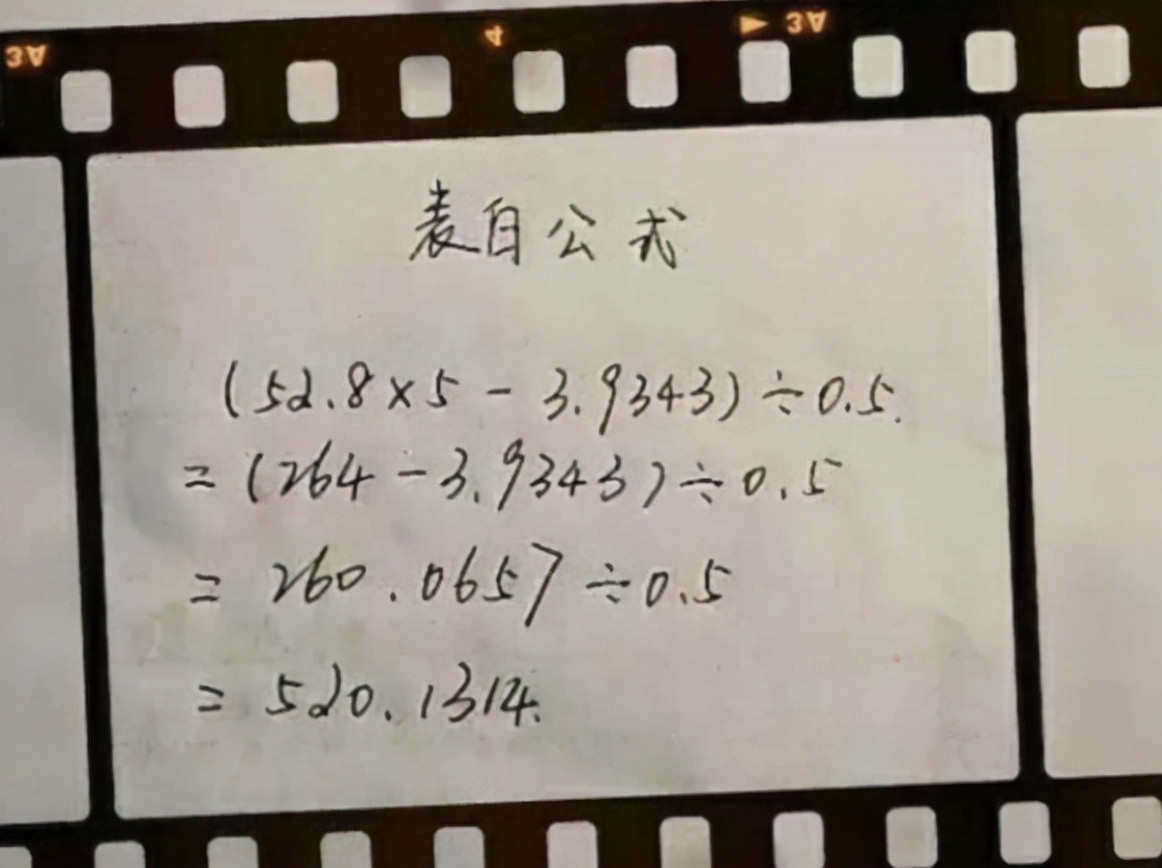 3A 4 ▶ 3A
表白公式
(52.8×5-3.9343)÷0.5.
=(264-3.9343)÷0.5
=260.0657÷0.5
=520.1314.